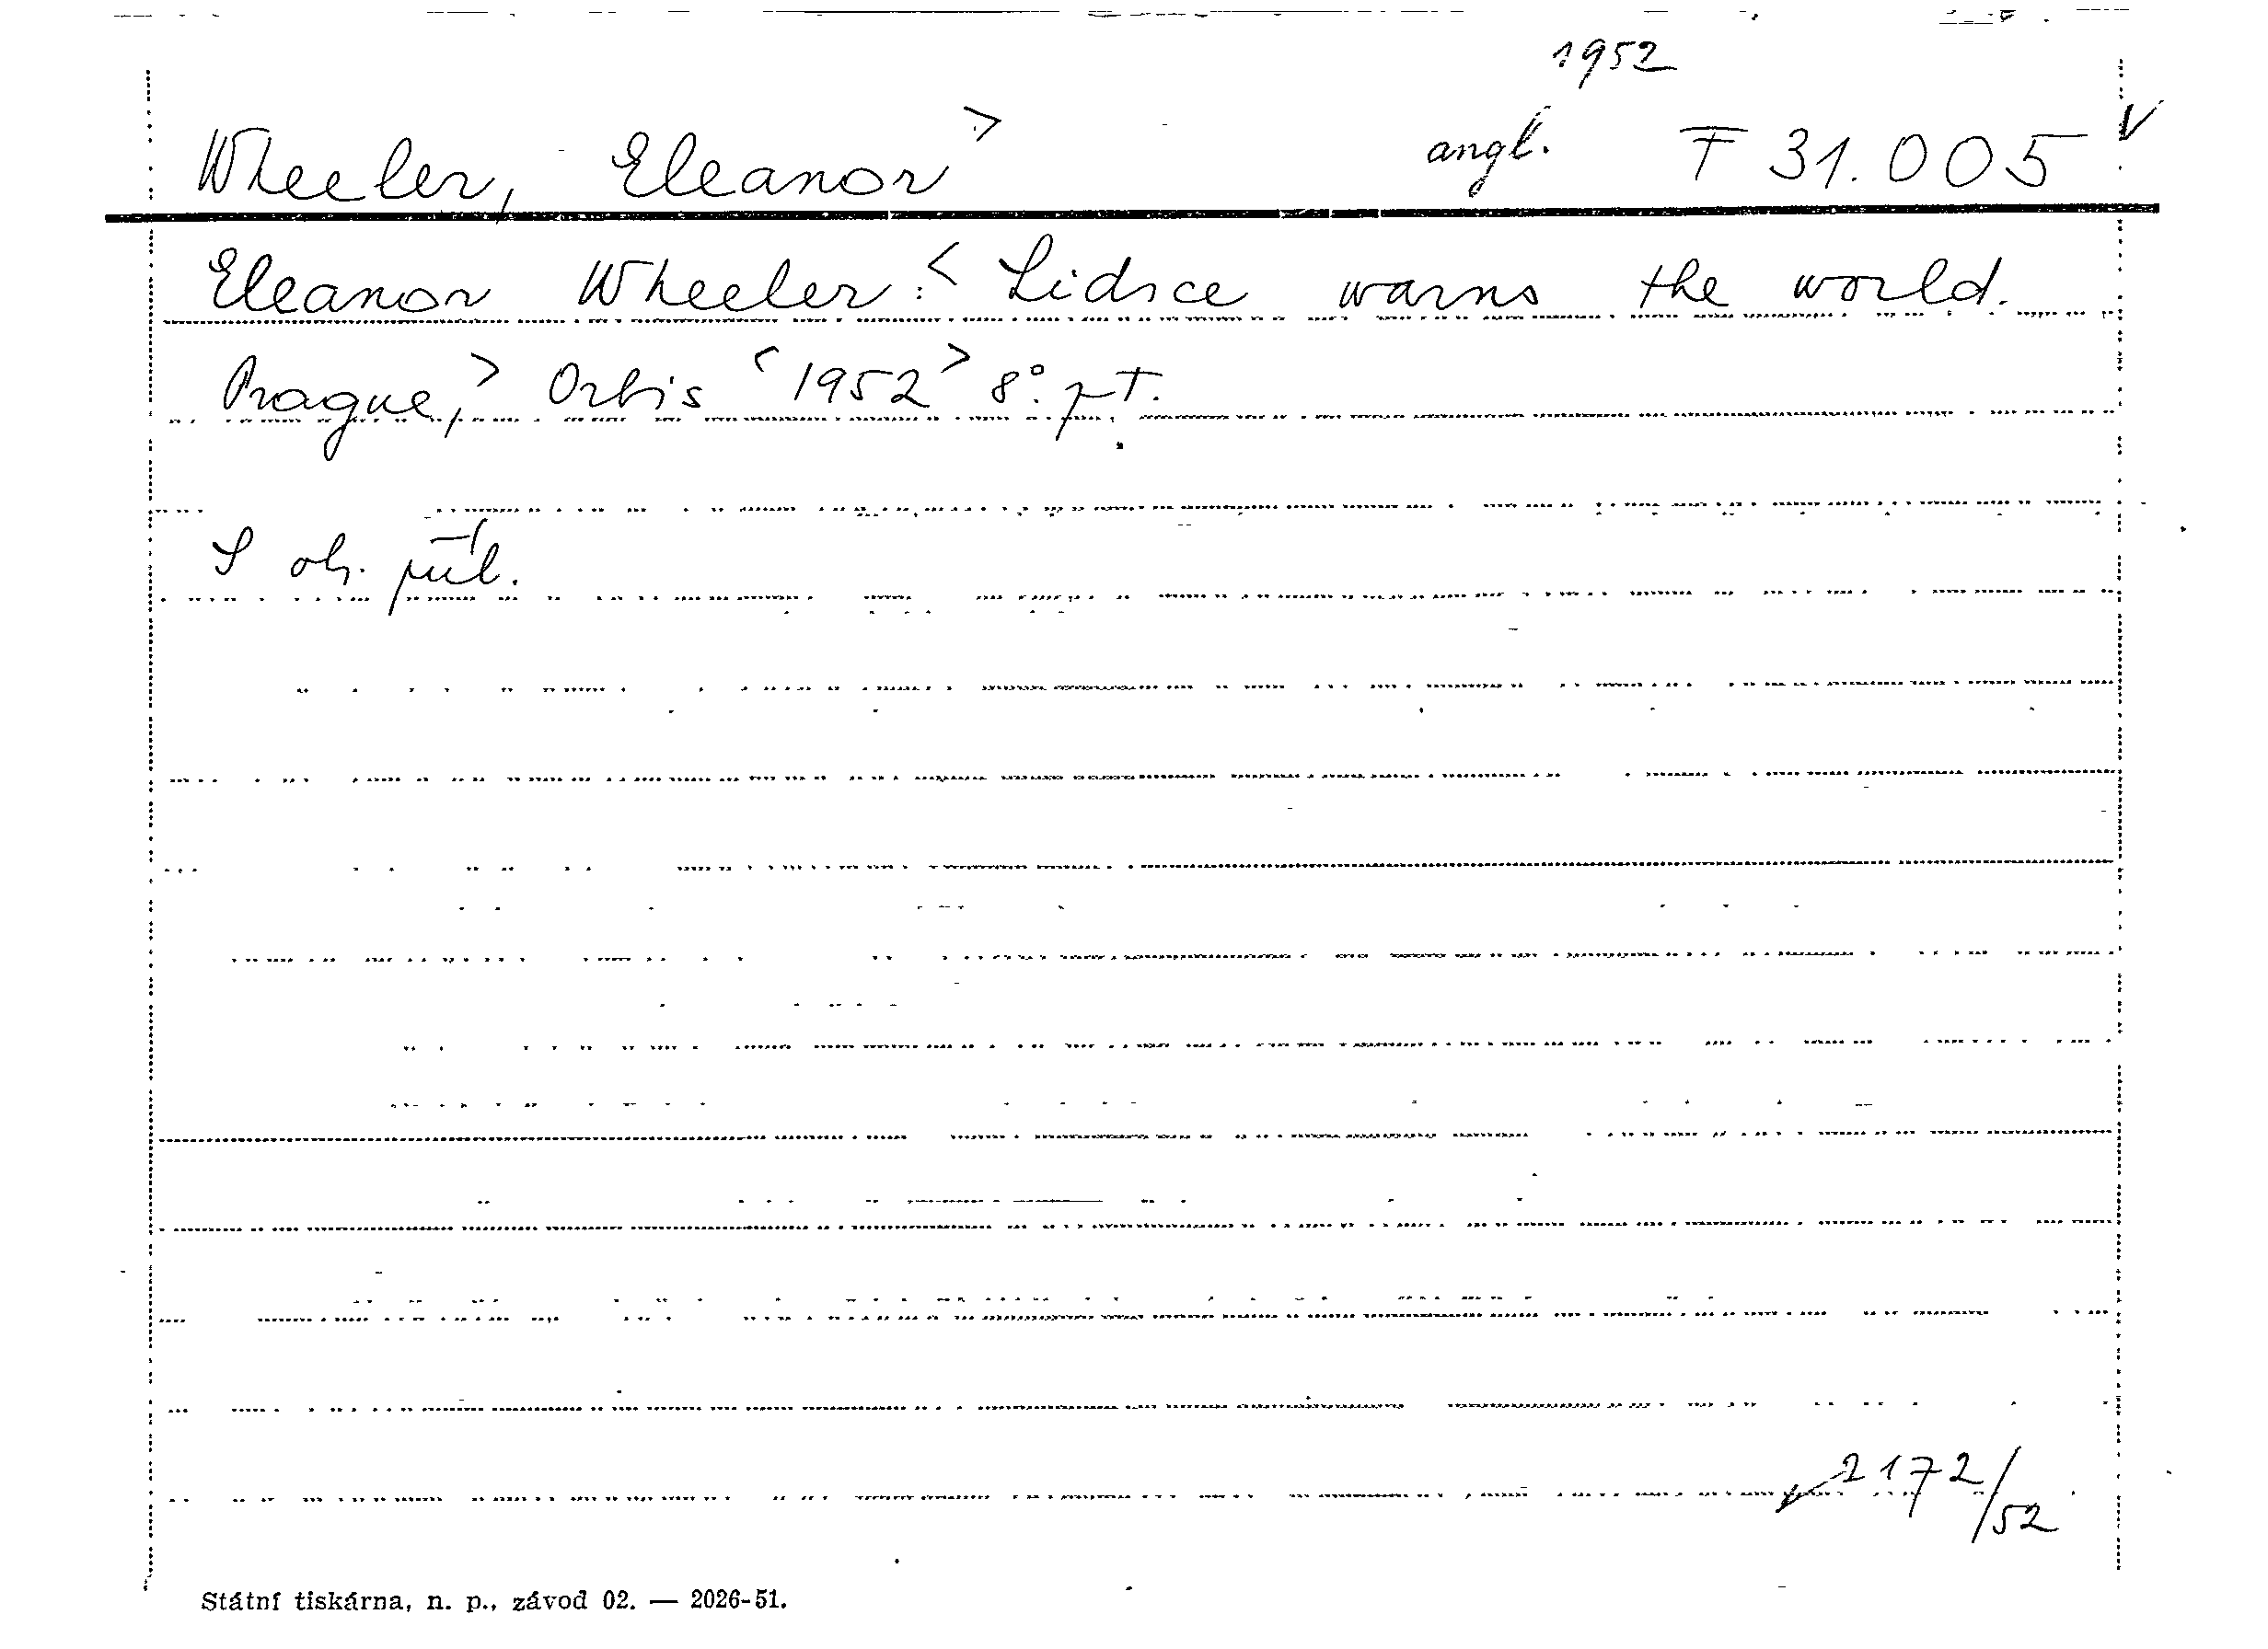 1952
Wheeler, Eleanor> angl. F 31.005 V
Eleanor Wheeler:< Lidice warns the world.
Prague,> Orbis <1952> 8°.
S obr. příl.
2172/52
Státní tiskárna, n. p., závod 02. — 2026-51.